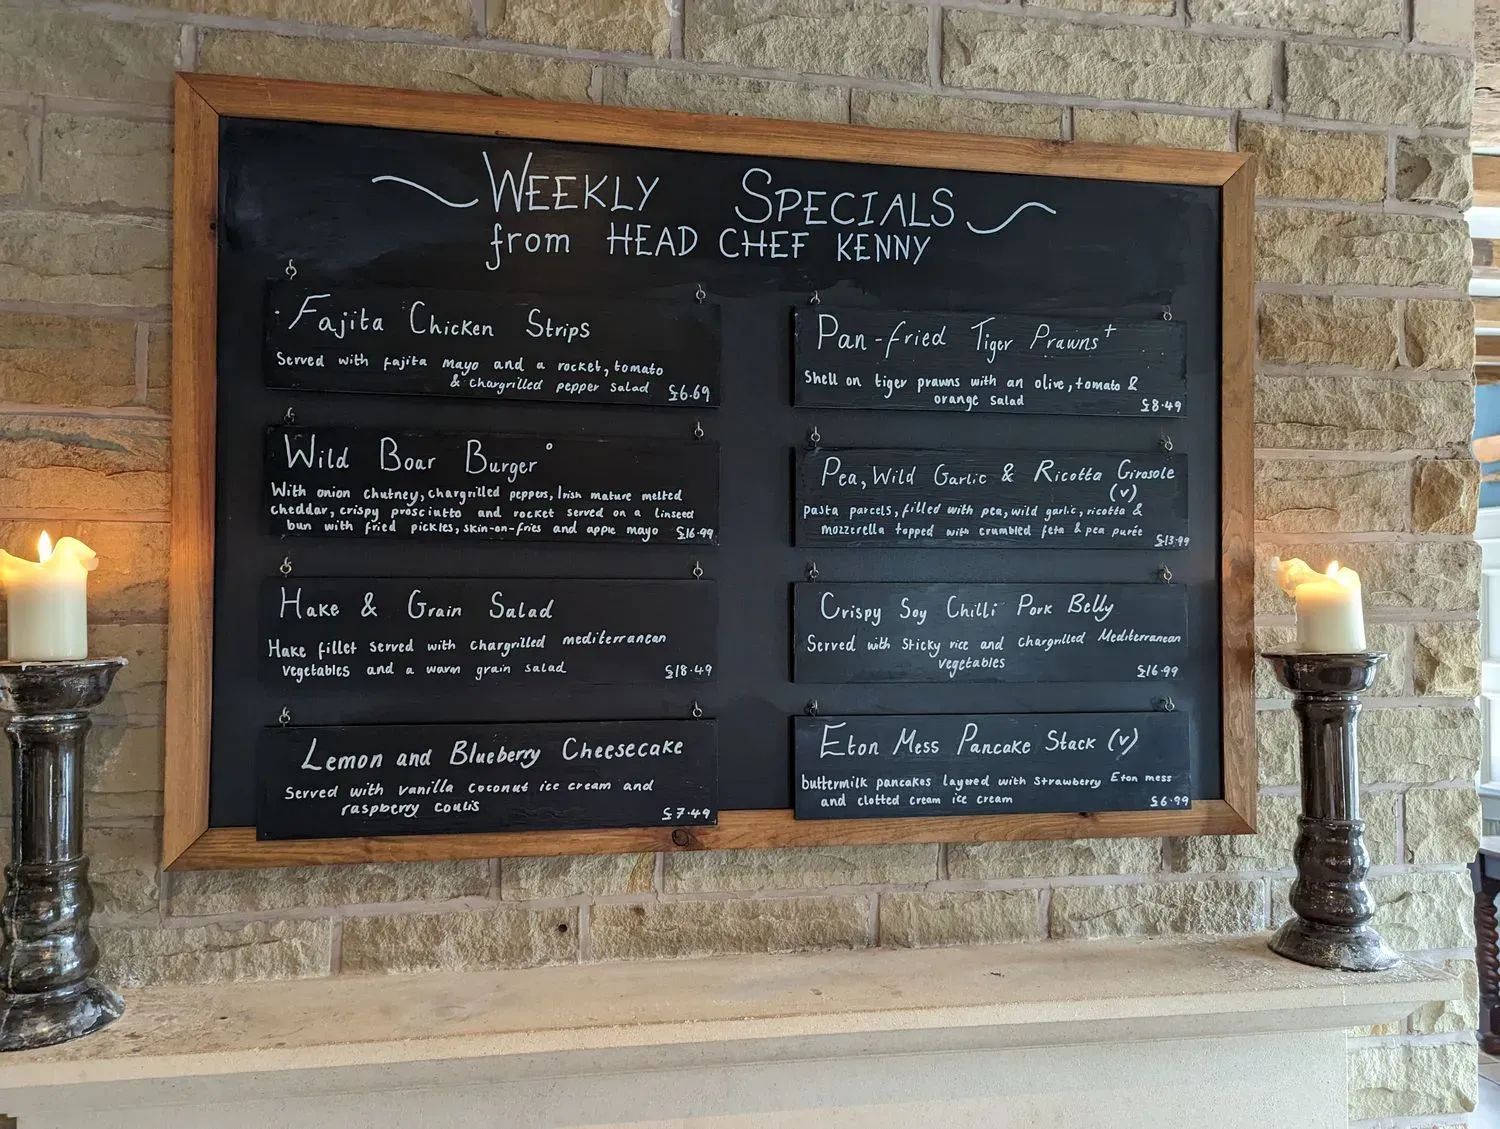 WEEKLY SPECIALS
from HEAD CHEF KENNY
Fajita Chicken Strips
Served with fajita mayo and a rocket, tomato
& chargrilled pepper salad £6.69
Wild Boar Burger°
With onion chutney, chargrilled peppers, Irish mature melted
cheddar, crispy prosciutto and rocket served on a linseed
bun with fried pickles, skin-on-fries and apple mayo £16.99
Hake & Grain Salad
Hake fillet served with chargrilled mediterranean
vegetables and a warm grain salad £18.49
Lemon and Blueberry Cheesecake
Served with vanilla coconut ice cream and
raspberry coulis £7.49
Pan-fried Tiger Prawns+
Shell on tiger prawns with an olive, tomato &
orange salad £8.49
Pea, Wild Garlic & Ricotta Girasole
(v)
pasta parcels, filled with pea, wild garlic, ricotta &
mozzerella topped with crumbled feta & pea purée £13.99
Crispy Soy Chilli Pork Belly
Served with Sticky rice and chargrilled Mediterranean
vegetables £16.99
Eton Mess Pancake Stack (v)
buttermilk pancakes layered with Strawberry Eton mess
and clotted cream ice cream £6.99